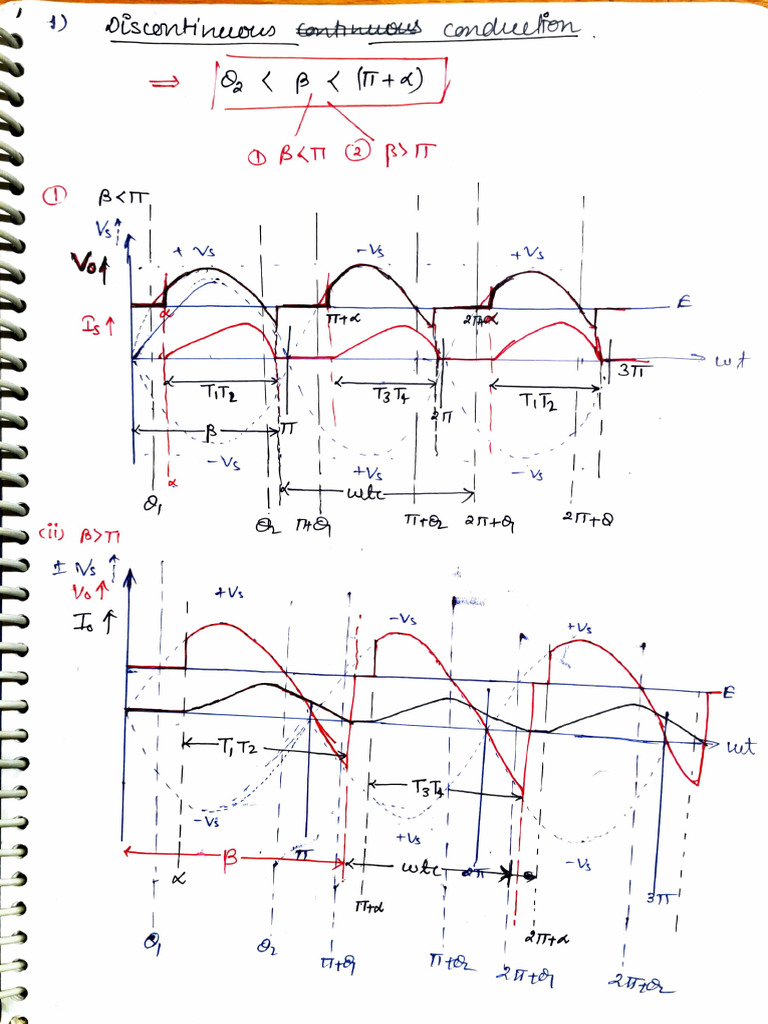 1) Discontinuous continuous conduction.
⇒ θ2 < β < (π + α)
① β<π ② β>π
① β<π
Vs↑
+Vs -Vs +Vs
Vo↑
E
α π+α 2π+α
Is↑
ωt
3π
T1T2 T3T4 T1T2
2π
β π
-Vs +Vs -Vs
α
ωtc
θ1 θ2 π+θ1 π+θ2 2π+θ1 2π+θ
(ii) β>π
± Vs ↑
Vo↑ +Vs -Vs +Vs
Io ↑
E
ωt
T1T2
T3T4
-Vs +Vs -Vs
β π ωtc 2π
α π+α 3π
2π+α
θ1 θ2 π+θ1 π+θ2 2π+θ1 2π+θ2